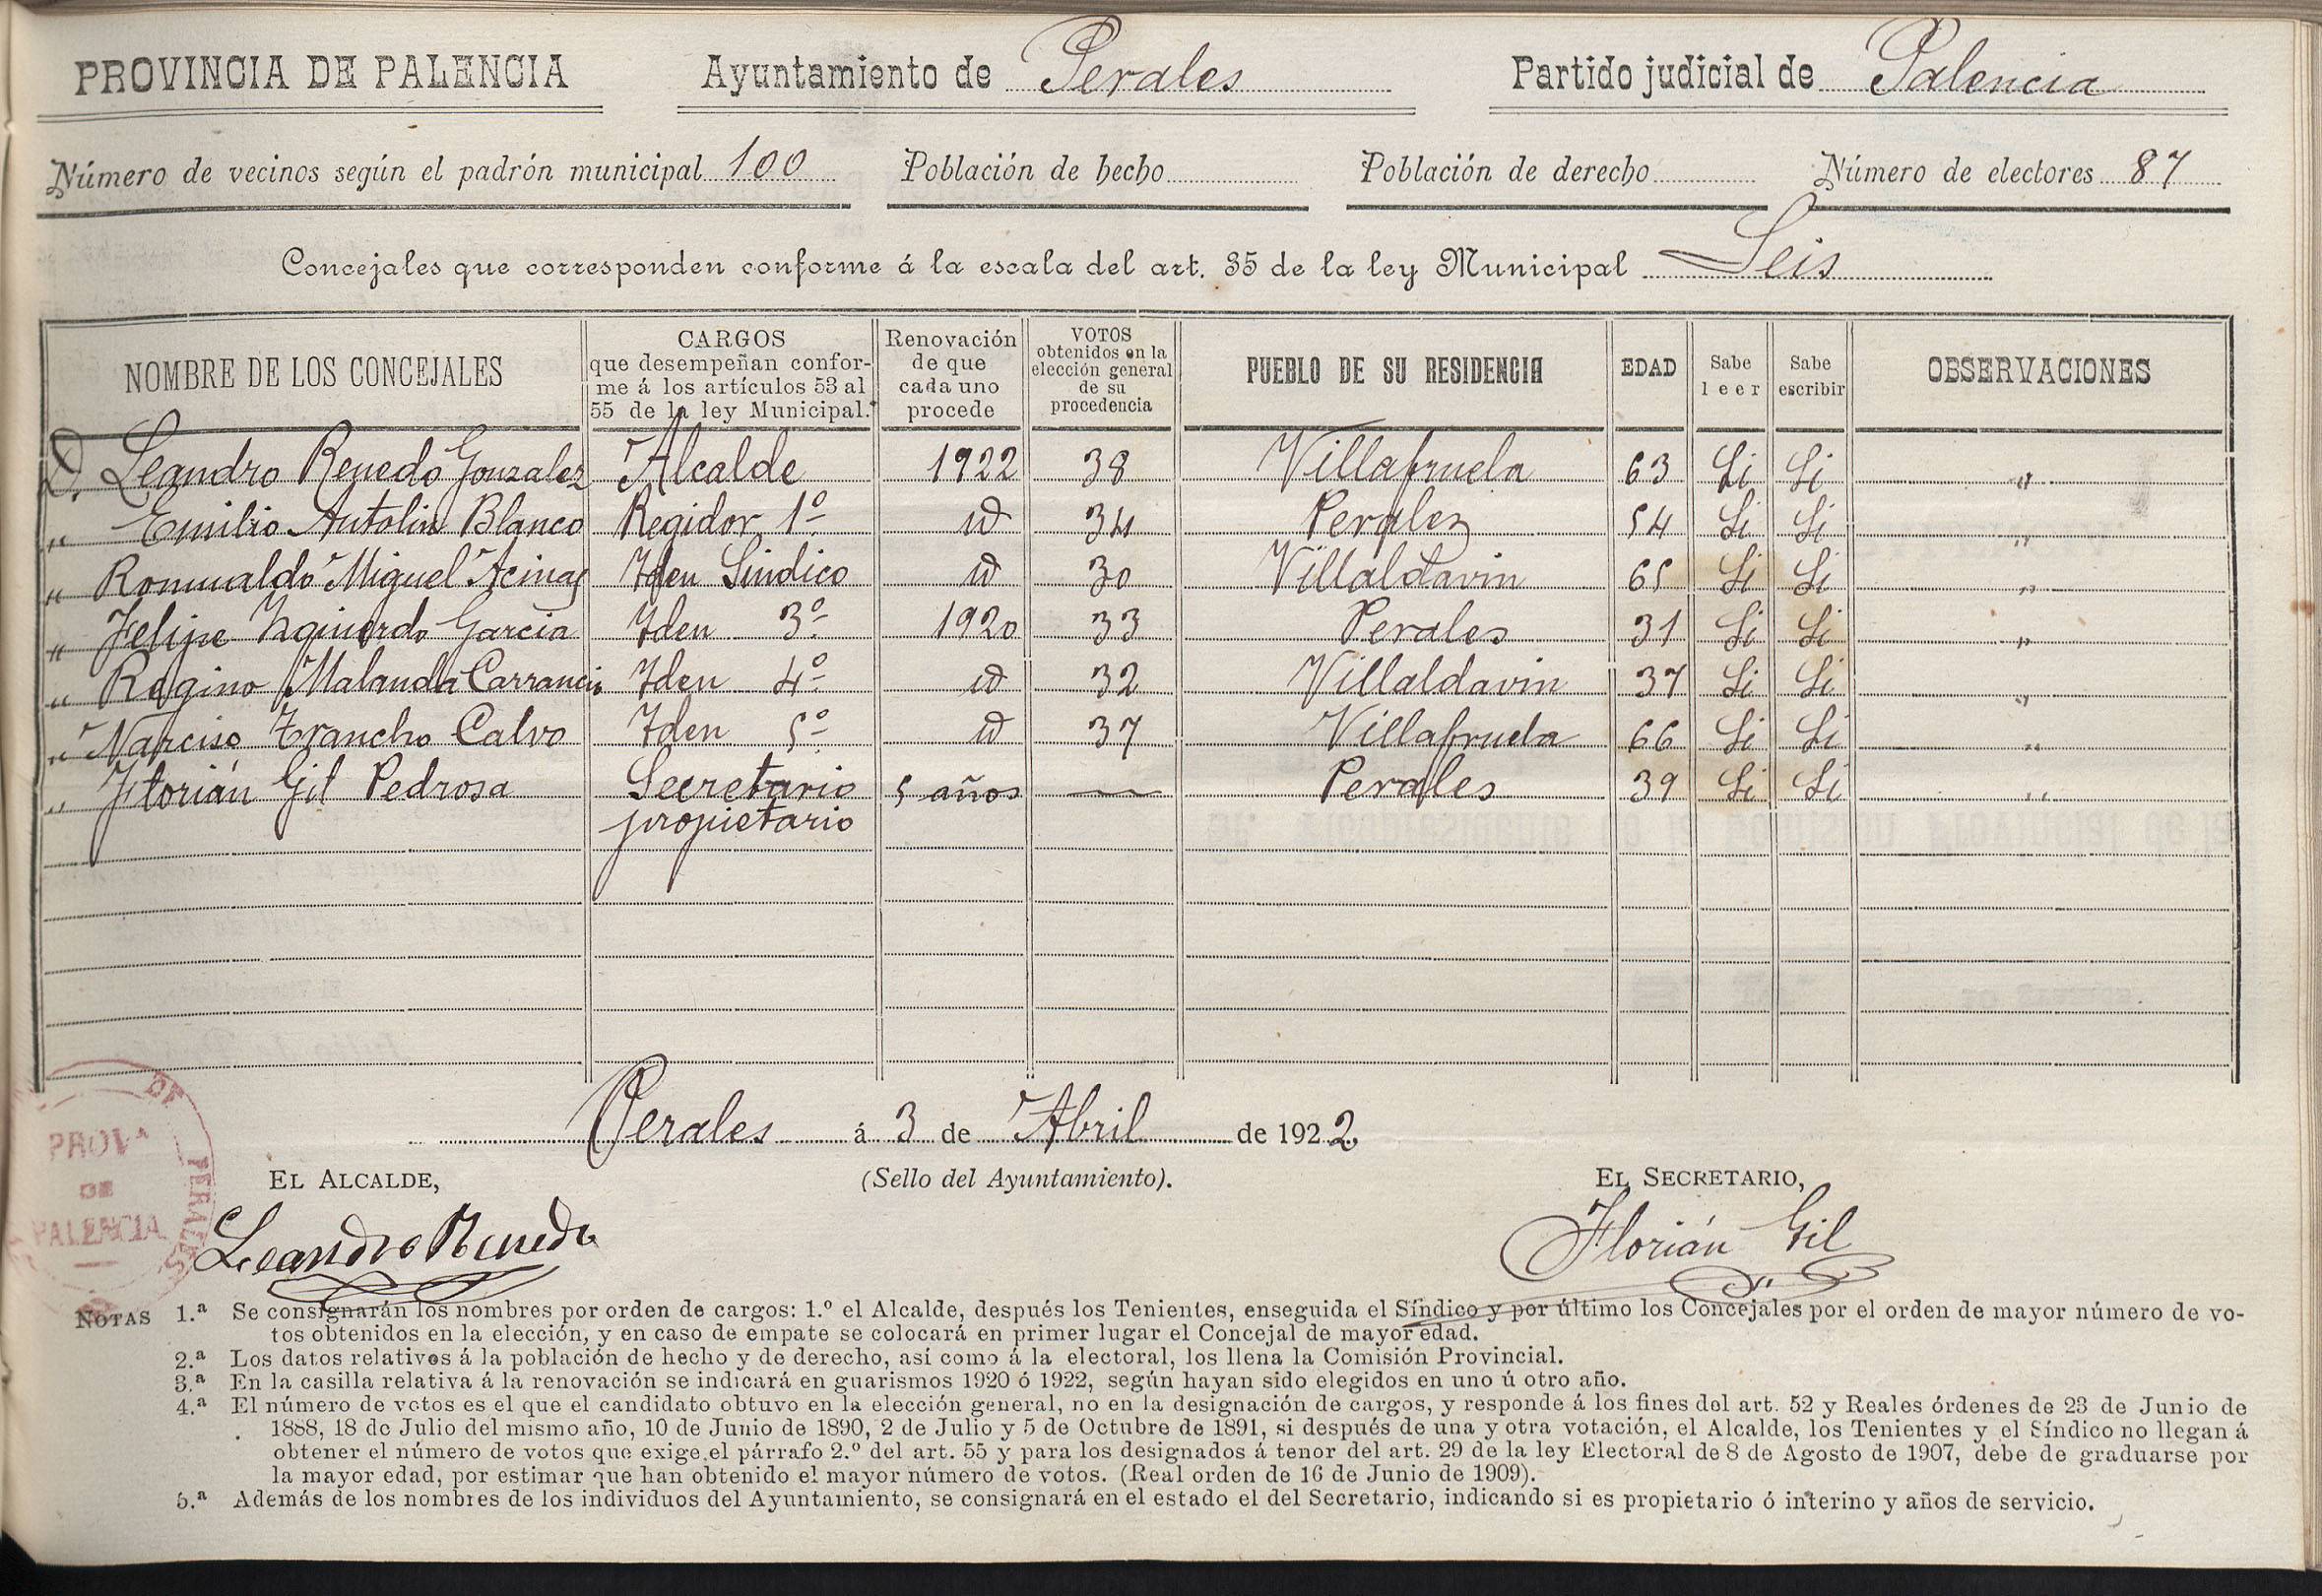 PROVINCIA DE PALENCIA Ayuntamiento de Perales Partido judicial de Palencia
Número de vecinos según el padrón municipal 100 Población de hecho Población de derecho Número de electores 87
Concejales que corresponden conforme á la escala del art. 35 de la ley Municipal Seis
NOMBRE DE LOS CONCEJALES CARGOS que desempeñan conforme á los artículos 53 al 55 de la ley Municipal. Renovación de que cada uno procede VOTOS obtenidos en la elección general de su procedencia PUEBLO DE SU RESIDENCIA EDAD Sabe leer Sabe escribir OBSERVACIONES
D. Leandro Renedo Gonzalez Alcalde 1922 38 Villafruela 63 Si Si "
" Emilio Antolin Blanco Regidor 1º id 34 Perales 54 Si Si "
" Romualdo Miguel Acinas Iden Sindico id 30 Villaldavin 65 Si Si "
" Felipe Izquierdo Garcia Iden 3º 1920 33 Perales 31 Si Si "
" Regino Malanda Carrancio Iden 4º id 32 Villaldavin 37 Si Si "
" Narciso Trancho Calvo Iden 5º id 37 Villafruela 66 Si Si "
" Florián Gil Pedrosa Secretario 5 años — Perales 39 Si Si "
propietario
Perales á 3 de Abril de 1922
EL ALCALDE, (Sello del Ayuntamiento). EL SECRETARIO,
DE PERALES
PROVª
DE
PALENCIA
Leandro Renedo Florián Gil
NOTAS 1.ª Se consignarán los nombres por orden de cargos: 1.º el Alcalde, después los Tenientes, enseguida el Síndico y por último los Concejales por el orden de mayor número de vo-
tos obtenidos en la elección, y en caso de empate se colocará en primer lugar el Concejal de mayor edad.
2.ª Los datos relativos á la población de hecho y de derecho, así como á la electoral, los llena la Comisión Provincial.
3.ª En la casilla relativa á la renovación se indicará en guarismos 1920 ó 1922, según hayan sido elegidos en uno ú otro año.
4.ª El número de votos es el que el candidato obtuvo en la elección general, no en la designación de cargos, y responde á los fines del art. 52 y Reales órdenes de 23 de Junio de
1888, 18 de Julio del mismo año, 10 de Junio de 1890, 2 de Julio y 5 de Octubre de 1891, si después de una y otra votación, el Alcalde, los Tenientes y el Síndico no llegan á
obtener el número de votos que exige el párrafo 2.º del art. 55 y para los designados á tenor del art. 29 de la ley Electoral de 8 de Agosto de 1907, debe de graduarse por
la mayor edad, por estimar que han obtenido el mayor número de votos. (Real orden de 16 de Junio de 1909).
5.ª Además de los nombres de los individuos del Ayuntamiento, se consignará en el estado el del Secretario, indicando si es propietario ó interino y años de servicio.